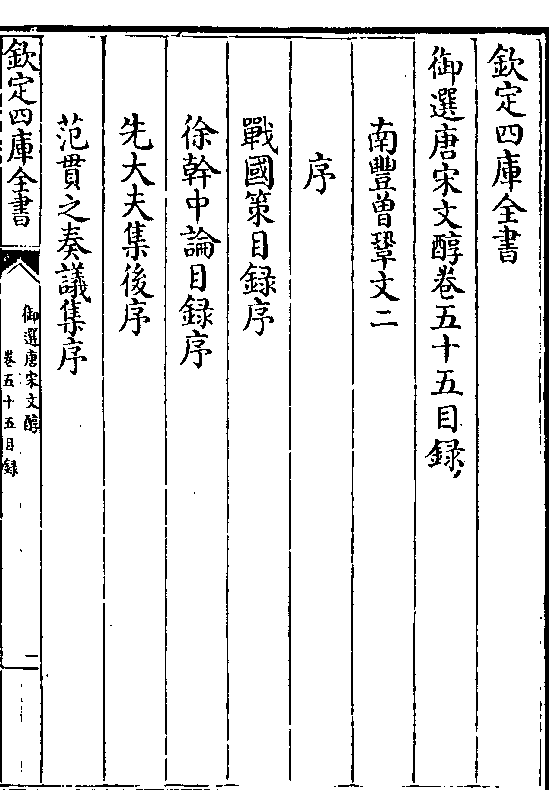 欽定四庫全書
御選唐宋文醇卷五十五目録
南豐曾鞏文二
序
戰國策目録序
徐幹中論目録序
先大夫集後序
范貫之奏議集序
欽定四庫全書
御選唐宋文醇
卷五十五目録
二